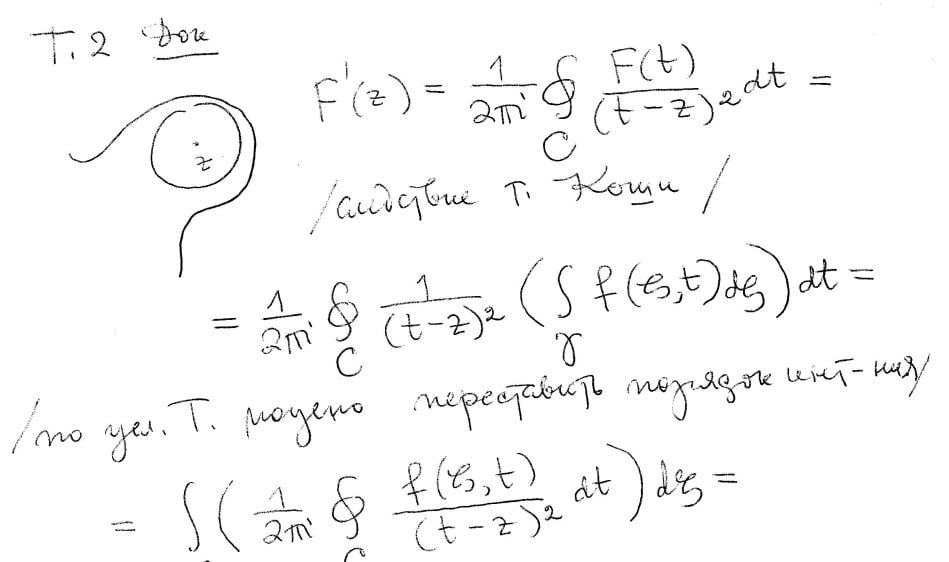 Т. 2 Док
z
F'(z) = 1/(2πi) ∮_C F(t)/(t-z)² dt =
/следствие Т. Коши/
= 1/(2πi) ∮_C 1/(t-z)² (∫_γ f(ξ,t)dξ) dt =
/по усл. Т. можно переставить порядок инт-ния/
= ∫ (1/(2πi) ∮_C f(ξ,t)/(t-z)² dt) dξ =